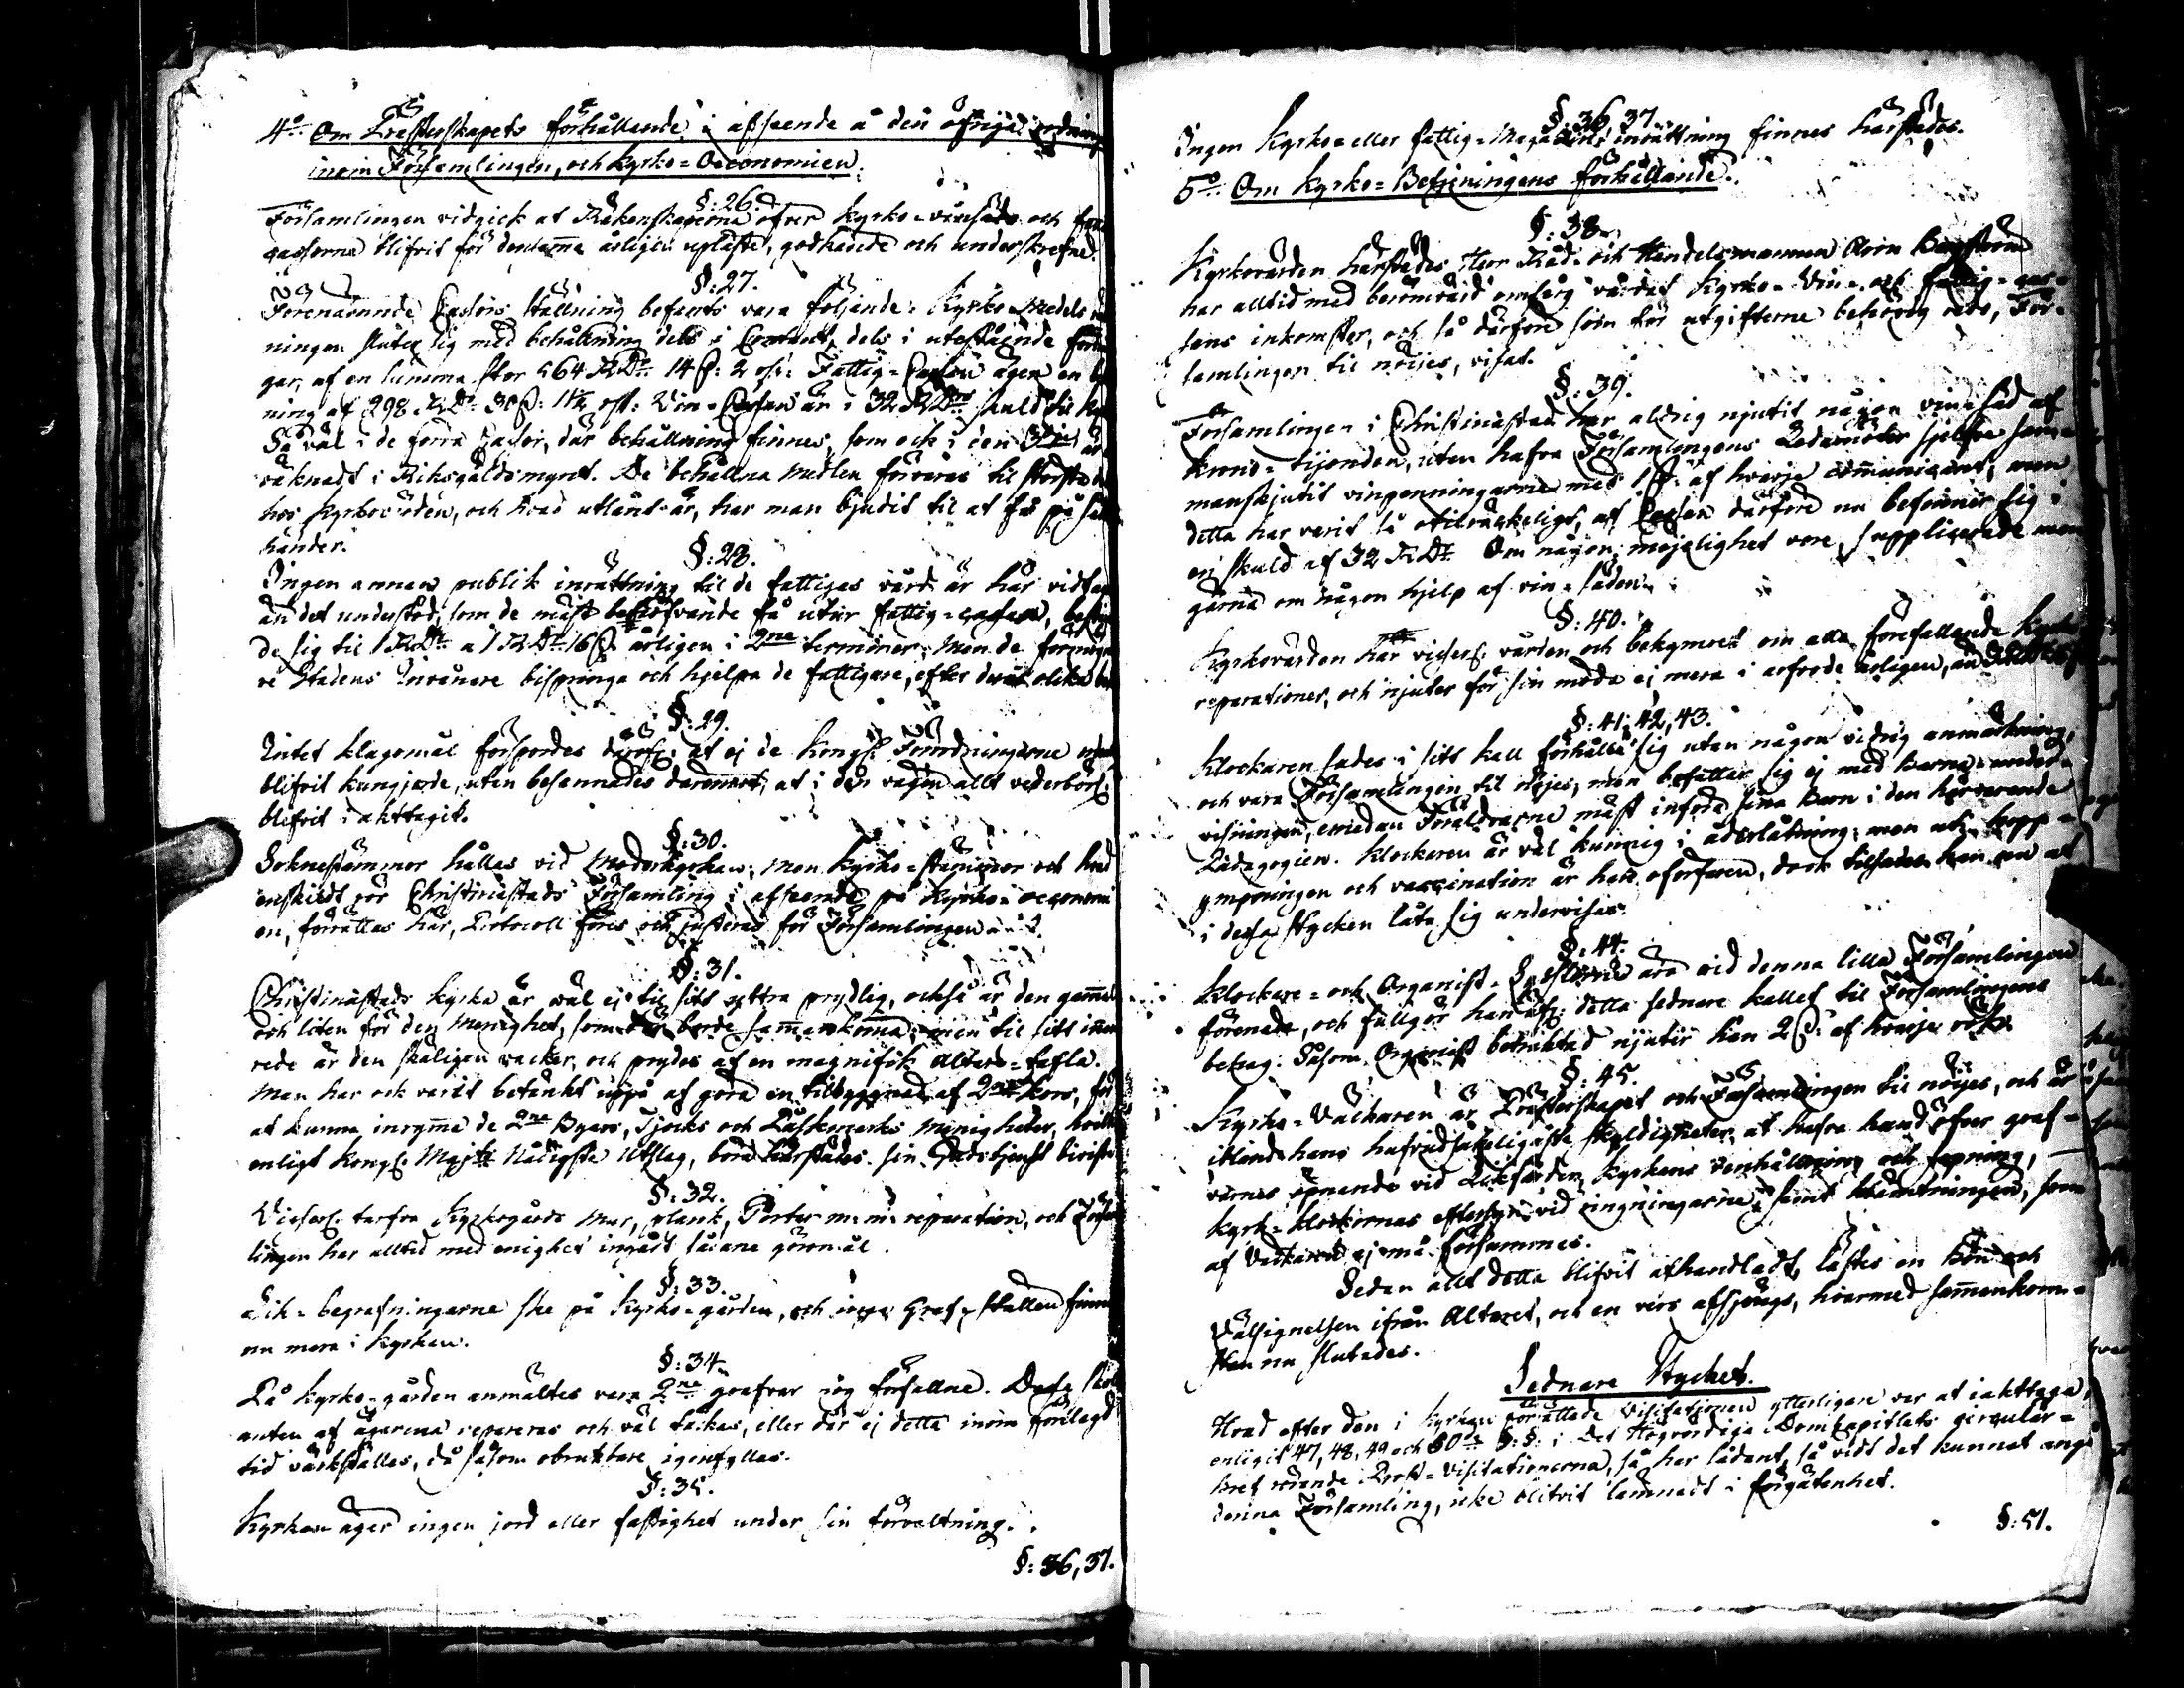 4:o Om Presterskapets förhållande i afseende å den öfriga ordning
inom Församlingen, och Kyrko=Oeconomien.
§: 26.
Församlingen vidgick at Räkenskaperna öfver Kyrko= och
blifvit för densamma årligen upläste, godkände och underskrefne.
§: 27.
Förenämnde Cassors ställning befants vara följande: Kyrko Medels
ningen sluter sig med behållning dels i Contant, dels i utestående
gar, af en summa stor 564 RDr 14 ß: 2 rst: Fattig=Cassan äger en
ning af 298 RDr 30 ß: 11½ rst: Vin=Cassan är i 32 RDrs skuld til
Så väl i de förra Cassor, där behållning finnes, som ock i den är
räknadt i Riksgäldsmynt. De behållna medlen förvaras til största
hos Kyrkovärden, och hvad utlånt är, har man bjudit til at få på
händer.
§: 28.
Ingen annan publik inrättning til de fattigas vård är här
än det understöd, som de mäst behöfvande få utur fattig=cassan,
de sig til 1 RDr a 1 RDr 16 ß årligen i 2ne terminer. Men de
re Stadens Invånare bispringa och hjelpa de fattigare, efter deras olika
§: 29.
Intet klagomål förspordes däröfr: at ej de Kongl: Förordningarne
blifvit kungjorde, utan besannades däremot, at i den vägen allt vederbörl:
blifvit i akttagit.
§: 30.
Soknestämmor hållas vid Moderkyrkan; men Kyrko=stämmor och hvad
enskildt rör Christinæstads Församling i afseende på Kyrko=oeconomi
en, förrättas här, Protocoll föres och justeras för Församlingen
§: 31.
Christinæstads Kyrka är väl ej til sitt yttra prydlig, också är den gammal
och liten för den Menighet, som där borde sammankomma; men til sitt inre
rede är den skäligen vacker, och prydes af en magnifik Altare=tafla.
Man har ock varit betänkt uppå at göra en tilbyggnad af 2ne kors, för
at kunna inrymma de 2ne Byars, Tjocks och Påskmarks Menigheter, hvilka
enligt Kongl: Majts Nådigste Utslag, böra härstädes sin Gudstjenst bivista
§: 32.
Kyrkogårds Mur, plank, Porter m: m: reparation, och
lingen har alltid med enighet ingått sådane göromål.
§: 33.
Lik=begrafningarne ske på Kyrko=gården, och inga Graf=ställen finnas
nu mera i Kyrkan.
§: 34.
På Kyrko=gården anmältes vara 2ne grafvar nog förfallne. Dessa skola
anten af ägarena repareras och väl täckas, eller där ej detta inom förelagd
tid värkställes, då såsom obruktbare igenfyllas.
§: 35.
Kyrkan äger ingen jord eller fastighet under sin förvaltning.
§: 36, 37.
§: 36, 37.
Ingen Kyrko= eller fattig=Magazins inrättning finnes härstädes.
5:o Om Kyrko=Betjeningens förhållande.
§: 38.
Kyrkovärden härstädes Herr Råd= och Handelsmannen
har alltid med berömvärd omsorg vårdat Kyrko= Vin= och fattig=cas=
sans inkomster, och så därföre som för utgifterne behörig redo, För=
samlingen til nöjes, visat.
§: 39.
Församlingen i Christinæstad har aldrig njutit någon vin=säd af
krono=tijonden, utan hafva Församlingens Ledamöter sjelfve sam=
manskjutit vinpenningarne med 1 ß: af hvarje communicant; men
detta har varit så otilräckeligt, at Cassan därföre nu befinner sig i
en skuld af 32 RDr. Om någon möjelighet vore, supplicerade man
gärna om någon hjelp af vin=säden.
§: 40.
Kyrkovärden har vården och bekymret om alla förefallande
reparationer, och njuter för sin möda ej mera i arfvode årligen, än
§: 41, 42, 43.
Klockaren sades i sitt kall förhålla sig utan någon vidrig anmärkning,
och vara Församlingen til nöjes, men befattar sig ej med Barna=under=
visningen, emedan Föräldrarne mäst införa sina Barn i den härvarande
Pædagogien. Klockaren är väl kunnig i åderlåtning; men uti kopp=
ympningen och vaccination är han oförfaren, dock tilsades han nu at
i dessa stycken låta sig undervisas.
§: 44.
Klockare= och Organist=Sysslorna äro vid denna lilla Församlingen
förenade, och fullgör han äfv: detta sednare kallet til Församlingens
behag. Såsom Organist betraktad njuter han 2 ß: af hvarje rök.
§: 45.
Kyrko=Väcktaren är Presterskapet och Församlingen til nöjes, och är
ibland hans hufvudsakeligaste skyldigheter at hafva hand öfver graf=
varnes öpnande vid Likfärden, Kyrkans renhållning och sopning,
Kyrk=klockornas eftersyn vid ringningarne, samt som
af Väcktaren ej må försummas.
Sedan allt detta blifvit afhandladt, lästes en Bön och
Välsignelsen ifrån Altaret, och en vers afsjöngs, hvarmed samankom=
sten nu slutades.
Sednare Stycket.
Hvad efter den i Kyrkan förrättade Visitationen ytterligare var at iakttaga,
enligit 47, 48, 49 och 50de §:§: i Det Högvördiga Domkapitlets circulär=
bref rörande Prost=Visitationerna, så har sådant, så vidt det kunnat angå
denna Församling, icke blifvit lämnadt i förgätenhet.
§: 51.